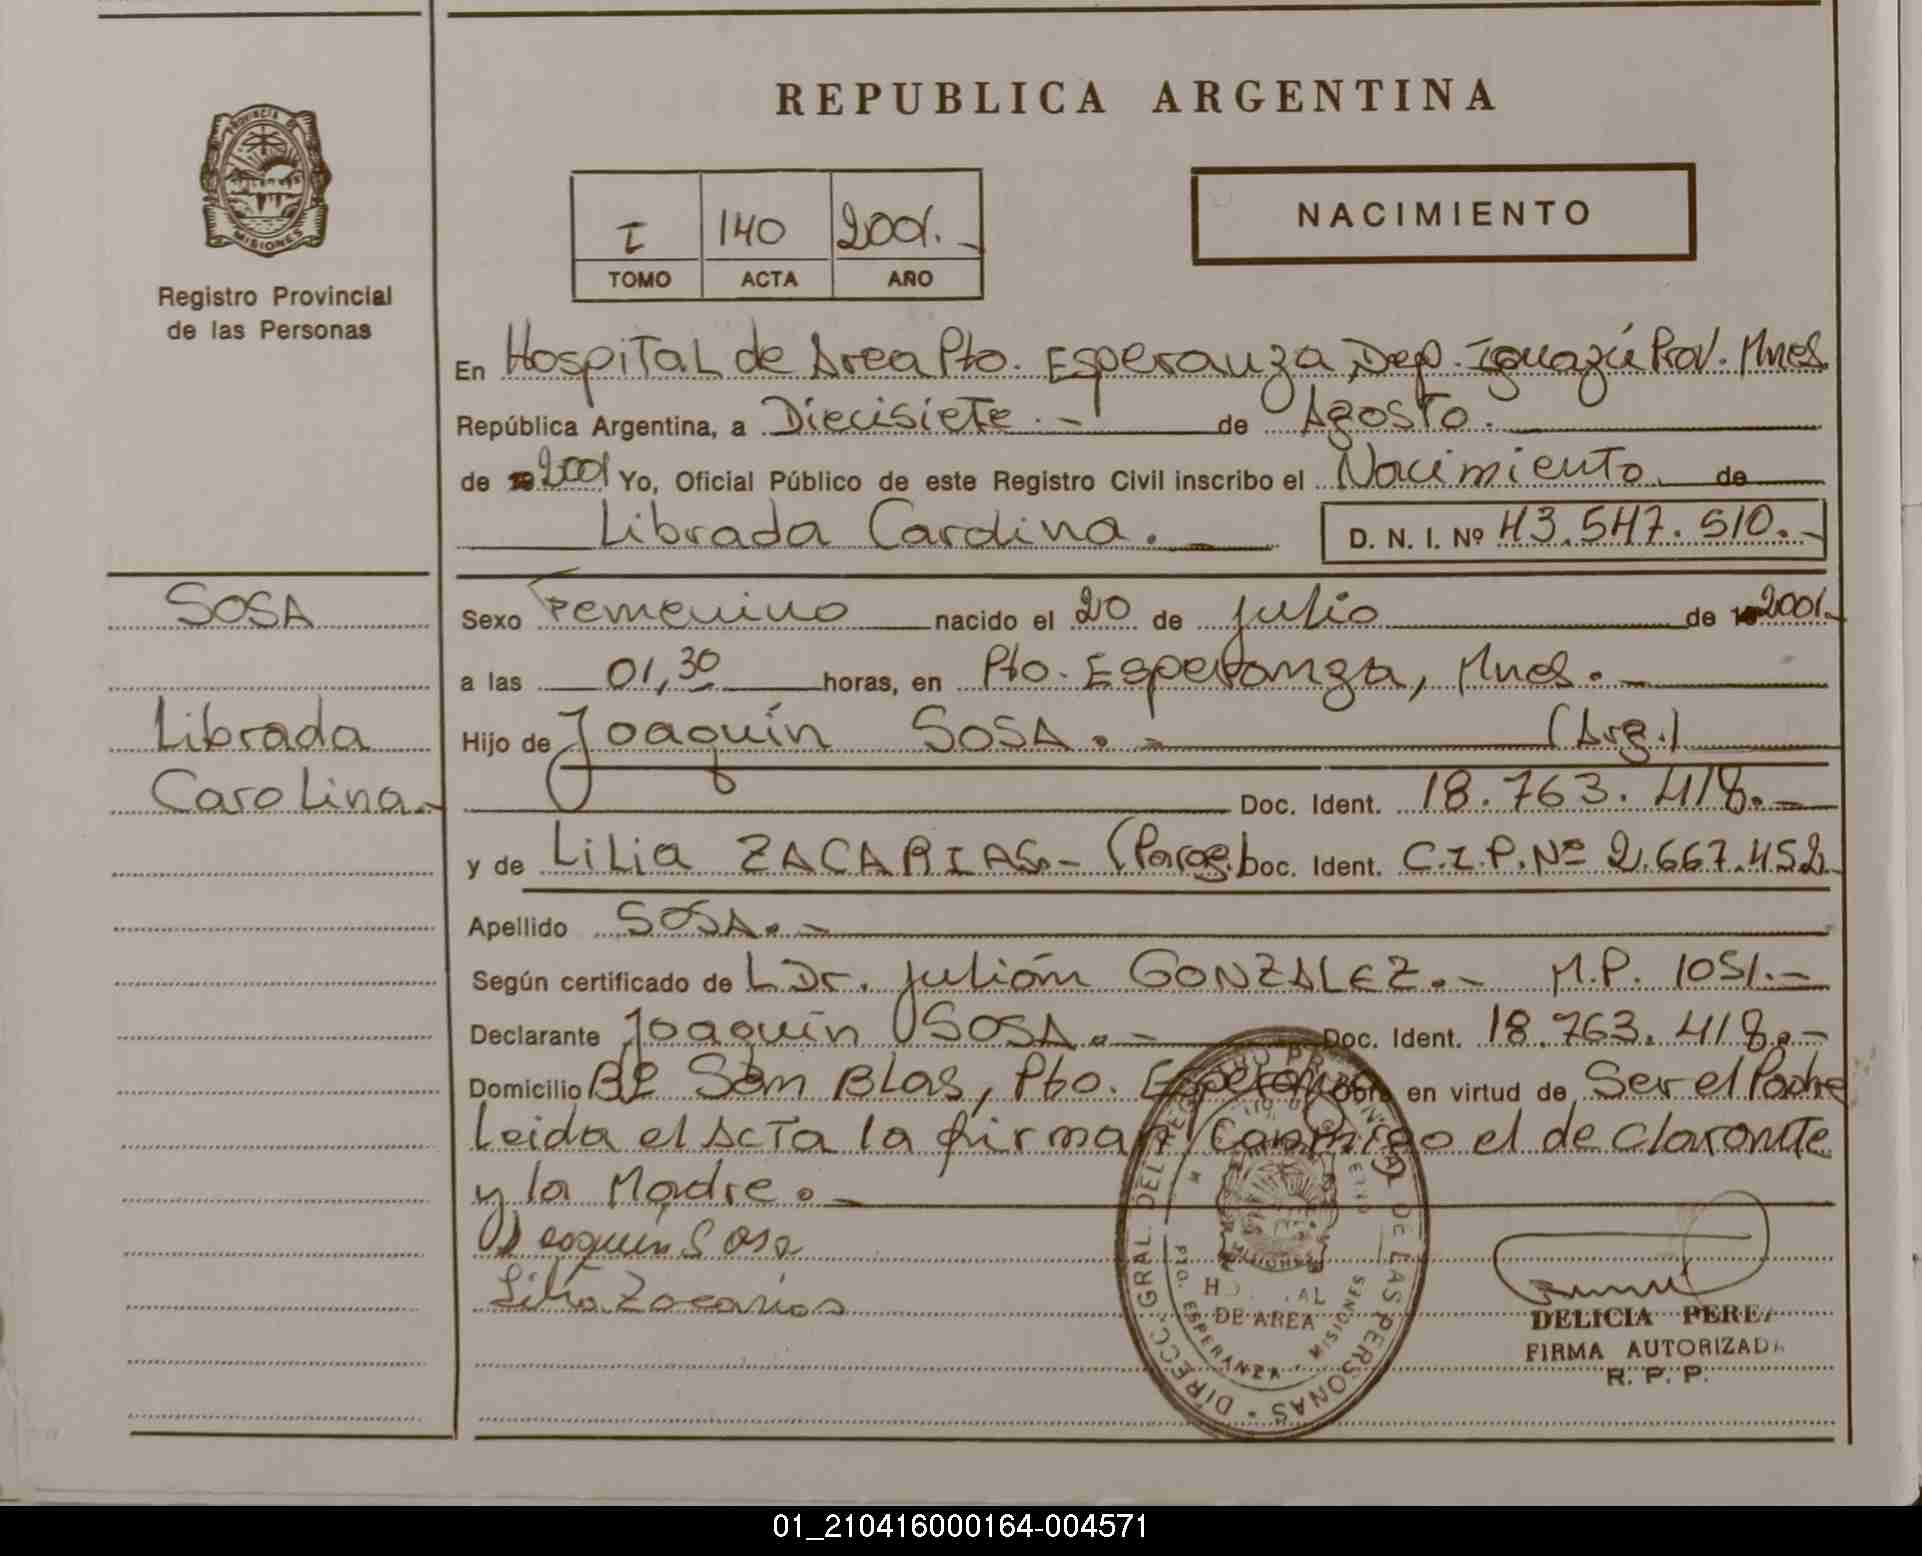 REPUBLICA ARGENTINA
PROVINCIA DE
MISIONES
Registro Provincial
de las Personas
I 140 2001.-
TOMO ACTA AÑO
NACIMIENTO
En Hospital de Area Pto. Esperanza, Dep. Iguazú Prov. Mnes.
República Argentina, a Diecisiete.- de Agosto.
de 2001 Yo, Oficial Público de este Registro Civil inscribo el Nacimiento de
Librada Carolina.- D. N. I. Nº 43.547.510.-
SOSA
Librada
Carolina.-
Sexo Femenino nacido el 20 de Julio de 2001.-
a las 01,30 horas, en Pto. Esperanza, Mnes.-
Hijo de Joaquín SOSA.- (Arg.)
Doc. Ident. 18.763.418.-
y de Lilia ZACARIAS.- (Parag.) Doc. Ident. C.I.P.Nº 2.667.452
Apellido SOSA.-
Según certificado de Dr. Julián GONZALEZ.- M.P. 1051.-
Declarante Joaquín SOSA.- Doc. Ident. 18.763.418.-
Domicilio Bº San Blas, Pto. Esperanza Obra en virtud de Ser el Padre
Leida el Acta la firman Conmigo el declarante
y la Madre.-
Joaquín Sosa
Lilia Zacarias
DIRECC. GRAL. DEL REGISTRO PROVINCIAL DE LAS PERSONAS
MISIONES
DE AREA
PTO. ESPERANZA - MISIONES
DELICIA PEREZ
FIRMA AUTORIZADA
R. P. P.
01_210416000164-004571